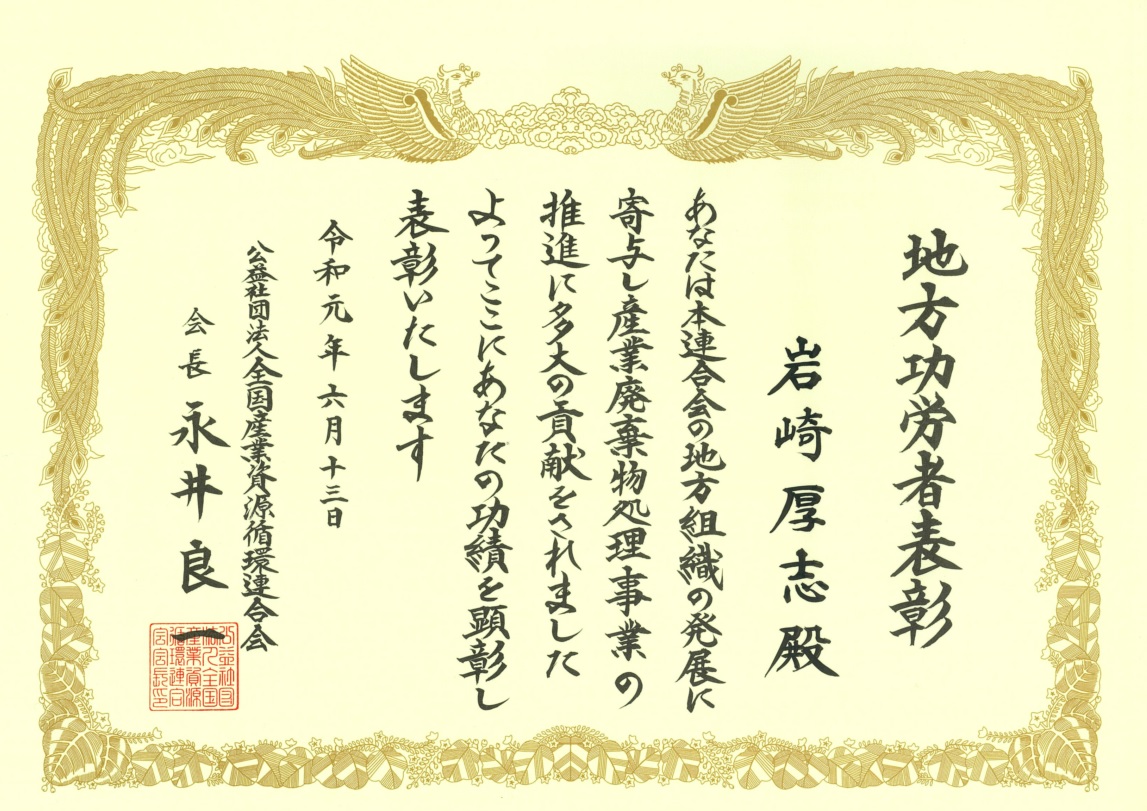 地方功労者表彰
岩崎厚志殿
あなたは本連合会の地方組織の発展に
寄与し産業廃棄物処理事業の
推進に多大の貢献をされました
よってここにあなたの功績を顕彰し
表彰いたします
令和元年六月十三日
公益社団法人全国産業資源循環連合会
会長 永井良一
公益社団
法人全国
産業資源
循環連合
会会長印